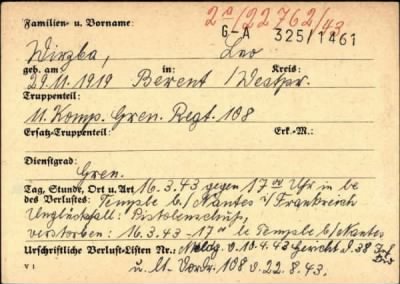 2a/22762/43
G-A 325/1461
Familien- u. Vorname:
Wirzba, Leo
geb. am in: Kreis:
29.11.1919 Berent /Westpr.
Truppenteil:
11. Komp. Gren. Regt. 108
Ersatz-Truppenteil: Erk.-M.:
Dienstgrad:
Gren.
Tag, Stunde, Ort u. Art 16.3.43 gegen 17 00 Uhr in
des Verlustes: Temple b/ Nantes / Frankreich
Unglücksfall: Pistolenschuß,
verstorben: 16.3.43 - 17 00 le Temple b/ Nantes
Urschriftliche Verlust-Listen Nr.: Meldg. v. 10.4.43 Gericht d. 38 Inf
Div
u. lt. 108 v. 22.8.43.
V 1